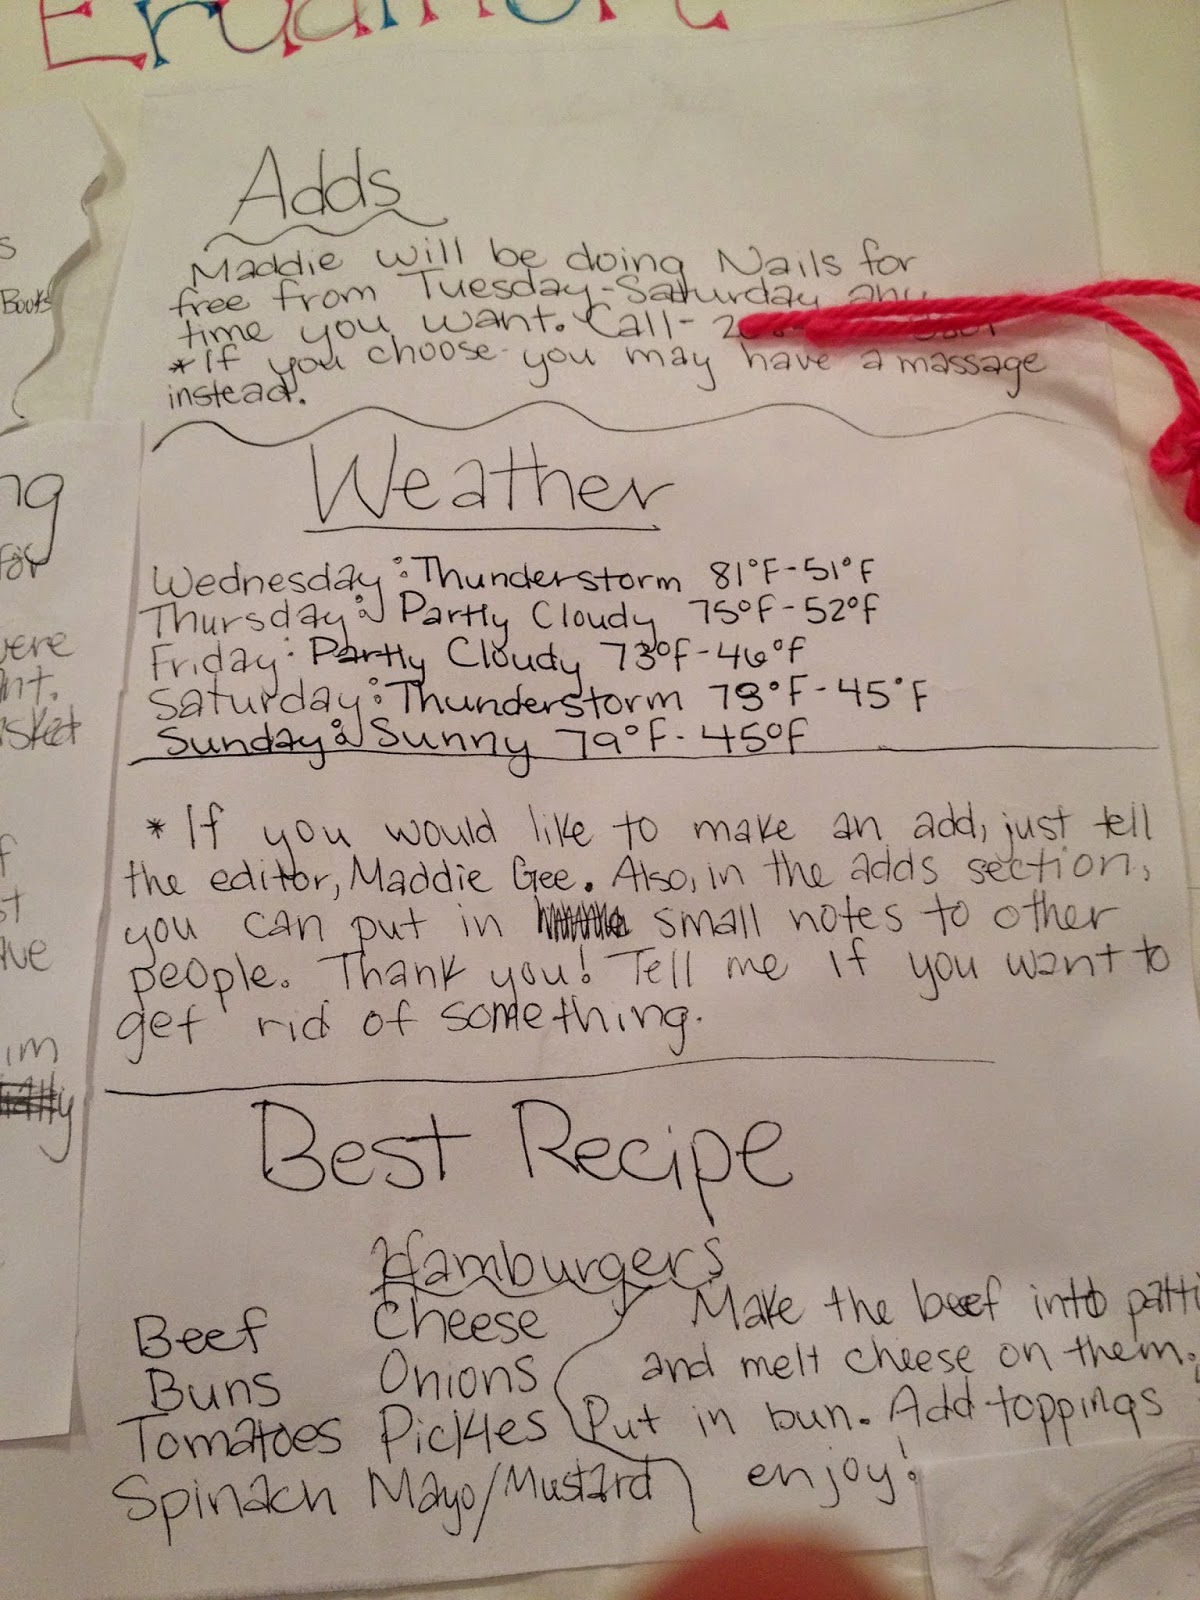 Adds
Maddie will be doing Nails for
free from Tuesday-Saturday any
time you want. Call-
*If you choose you may have a massage
instead.
Weather
Wednesday: Thunderstorm 81°F-51°F
Thursday: Partly Cloudy 75°F-52°F
Friday: Partly Cloudy 73°F-46°F
Saturday: Thunderstorm 79°F-45°F
Sunday: Sunny 79°F-45°F
*If you would like to make an add, just tell
the editor, Maddie Gee. Also, in the adds section,
you can put in small notes to other
people. Thank you! Tell me if you want to
get rid of something.
Best Recipe
Hamburgers
Beef Cheese
Buns Onions
Tomatoes Pickles
Spinach Mayo/Mustard
Make the beef into patti
and melt cheese on them.
Put in bun. Add toppings
enjoy!
Books
ng
for
were
nt.
sket
im